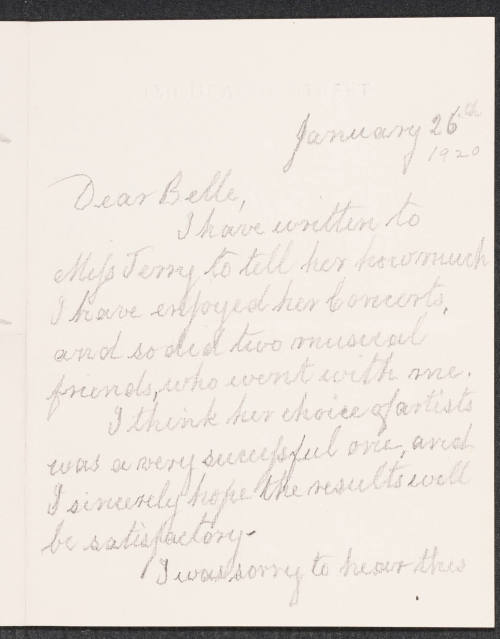 January 26th
1920
Dear Belle,
I have written to
Miss Terry to tell her how much
I have enjoyed her Concerts,
and so did two musical
friends, who went with me.
I think her choice of artists
was a very successful one, and
I sincerely hope the results will
be satisfactory-
I was sorry to hear this